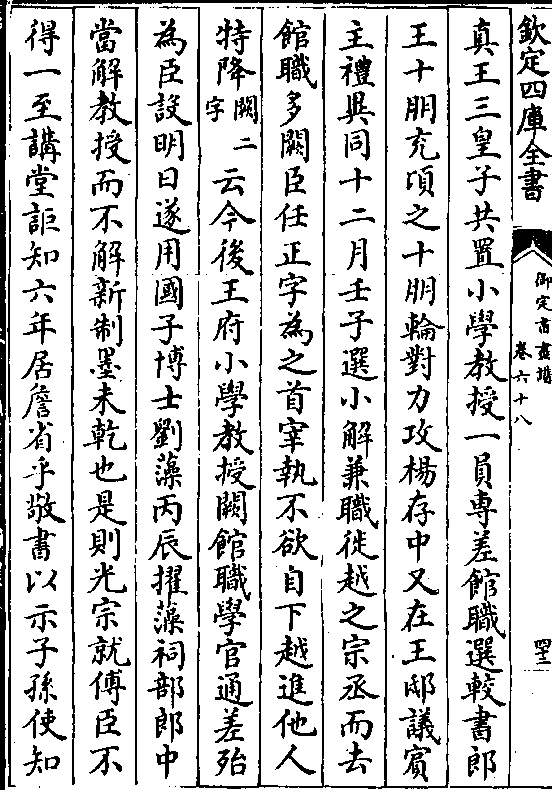 欽定四庫全書
御定書畫譜
卷六十八
四十二
真王三皇子共置小學教授一員專差館職選較書郎
王十朋充項之十朋輪對力攻楊存中又在王邸議賓
主禮異同十二月壬子選小解兼職徙越之宗丞而去
館職多闕臣任正字為之首宰執不欲自下越進他人
特降闕二字云今後王府小學教授闕館職學官通差殆
為臣設明日遂用國子博士劉藻丙辰擢藻祠部郎中
當解教授而不解新制墨未乾也是則光宗就傅臣不
得一至講堂詎知六年居詹省乎敬書以示子孫使知